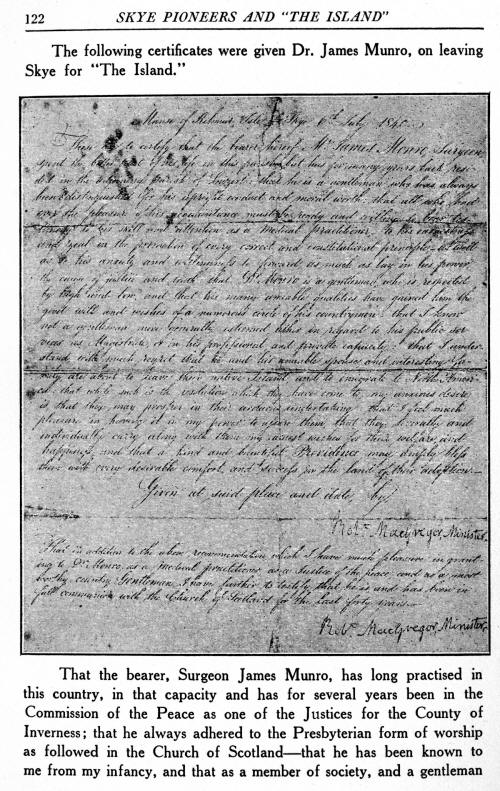 122 SKYE PIONEERS AND "THE ISLAND"
The following certificates were given Dr. James Munro, on leaving
Skye for "The Island."
Manse of Kilmuir, Isle of Skye 6th July 1840.
These are to certify that the bearer hereof Mr James Munro, Surgeon
spent the of his life in this parish but has for many years back resi-
ded in the parish of Snizort: that he is a gentleman who has always
been distinguished for his upright conduct and moral worth, that all who had
ever the pleasure of his must readily and willingly bear tes-
timony to his skill and attention as a medical practitioner, to his
and zeal in the promotion of every correct and constitutional principle, as well
as to his anxiety and willingness to forward as much as lay in his power
the cause of justice and truth, that Dr. Munro is a gentleman, who is respected
by high and low, and that his many amiable qualities have gained him the
good will and wishes of a numerous circle of his countrymen: that I know
not a gentleman more warmly esteemed both in regard to his public ser-
vices as Magistrate, & in his professional and private capacity: that I under-
stand with much regret that he and his amiable spouse and interesting fa-
mily are about to leave their native Island and to emigrate to North Ameri-
ca, that while such is the resolution which they have come to my anxious desire
is that they may prosper in their arduous undertaking, that I feel much
pleasure in having it in my power to assure them that they socially and
individually carry along with them my earnest wishes for their welfare and
happiness, and that a kind and bountiful Providence may amply bless
them with every desirable comfort, and success, in the land of their adoption.—
Given at said place and date, by
Robt. MacGregor, Minister.
That in addition to the above recommendation which I have much pleasure in grant-
ing to Dr. Munro, as a medical practitioner, as a Justice of the peace, and as a most
worthy country Gentleman, I have further to testify that he is and has been in
full communion with the Church of Scotland for the last forty years.—
Robt. MacGregor, Minister.
That the bearer, Surgeon James Munro, has long practised in
this country, in that capacity and has for several years been in the
Commission of the Peace as one of the Justices for the County of
Inverness; that he always adhered to the Presbyterian form of worship
as followed in the Church of Scotland—that he has been known to
me from my infancy, and that as a member of society, and a gentleman